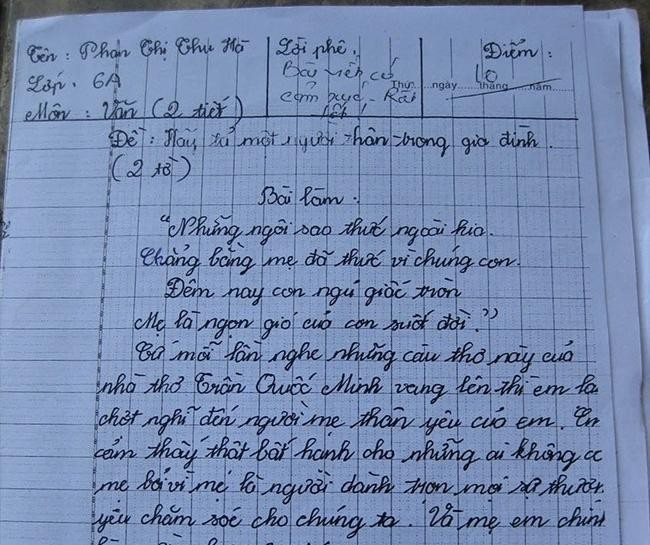 Tên : Phan Thị Thu Hà
Lớp. 6A
Môn : Văn (2 tiết)
Lời phê.
Bài viết có
cảm xúc. Rất
tốt!
Điểm :
10
Thứ......ngày......tháng......năm......
Đề : Hãy tả một người thân trong gia đình.
(2 tờ)
Bài làm.
"Những ngôi sao thức ngoài kia.
Chẳng bằng mẹ đã thức vì chúng con.
Đêm nay con ngủ giấc tròn
Mẹ là ngọn gió của con suốt đời."
Cứ mỗi lần nghe những câu thơ này của
nhà thơ Trần Quốc Minh vang lên thì em lạ
chợt nghĩ đến người mẹ thân yêu của em. Em
cảm thấy thật bất hạnh cho những ai không c
mẹ bởi vì mẹ là người dành trọn mọi sự thươn
yêu chăm sóc cho chúng ta. Và mẹ em chính